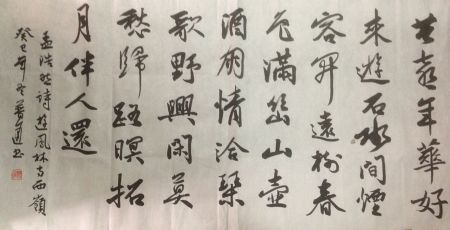 共喜年華好
来遊石水間煙
容開遠樹春
色滿幽山壺
酒朋情洽琴
歌野興閑莫
愁歸路暝招
月伴人還
孟浩然詩遊鳳林寺西嶺
癸巳年冬普通书